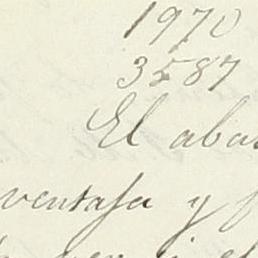 1970
3587
El aba
ventafa y